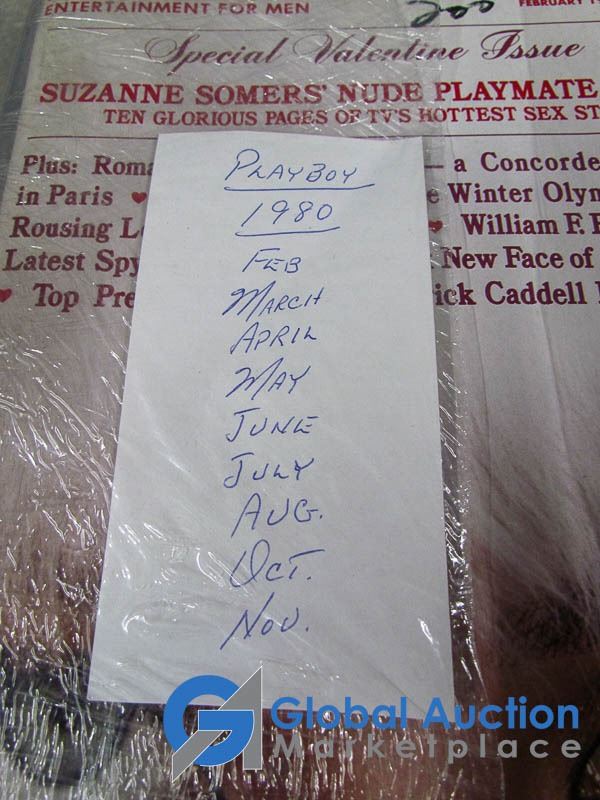 ENTERTAINMENT FOR MEN
FEBRUARY
Special Valentine Issue
SUZANNE SOMERS' NUDE PLAYMATE
TEN GLORIOUS PAGES OF TV'S HOTTEST SEX
Plus: a Concorde
in Paris Winter
Rousing William F.
Latest New Face of
Top Caddell
PLAYBOY
1980
FEB
MARCH
APRIL
MAY
JUNE
JULY
AUG.
OCT.
NOV.
Global Auction
Marketplace